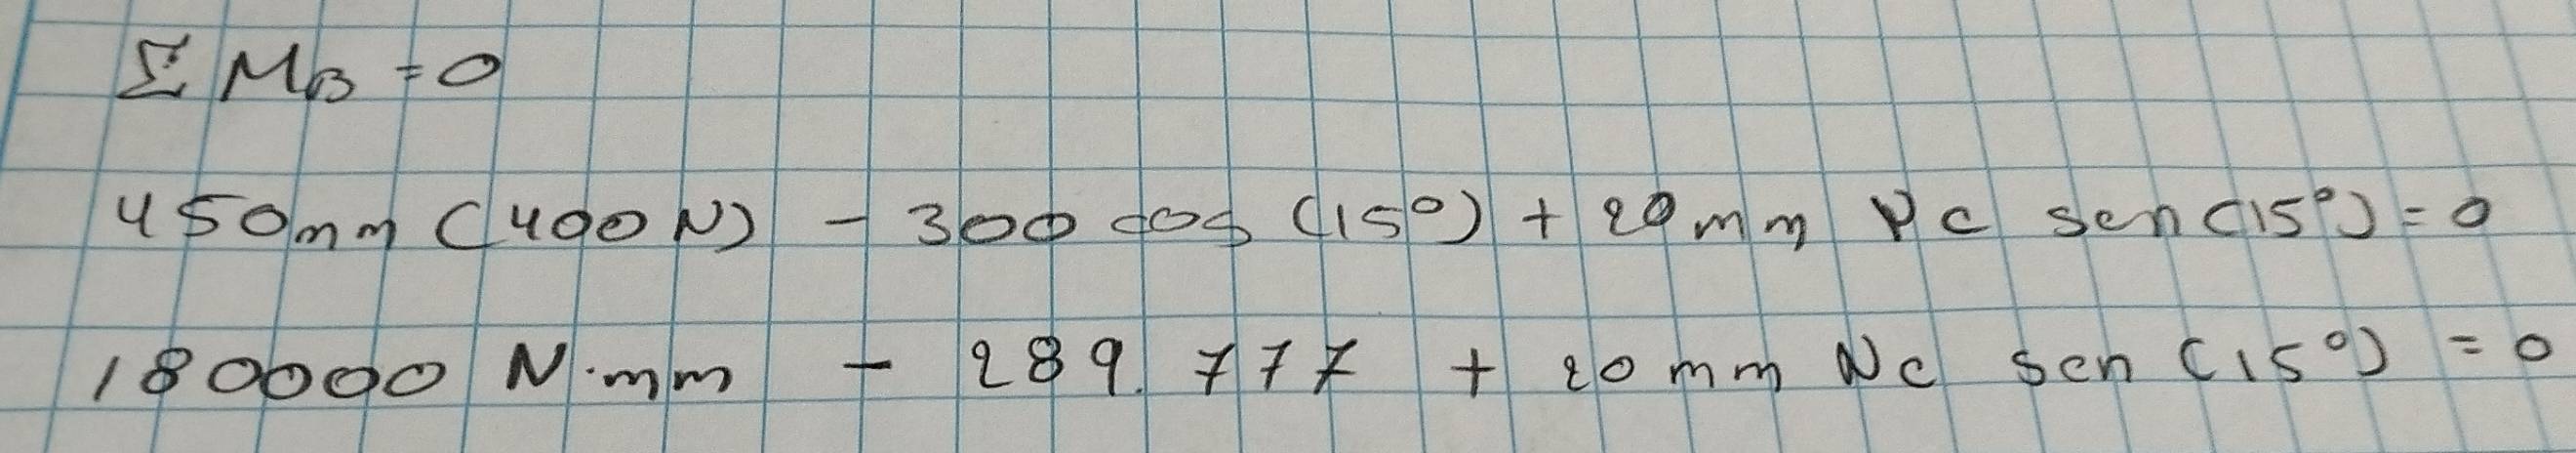 Σ M_B = 0
450mm (400 N) - 300 cos (15°) + 20 mm Nc sen (15°) = 0
180000 N·mm - 289.777 + 20 mm Nc sen (15°) = 0